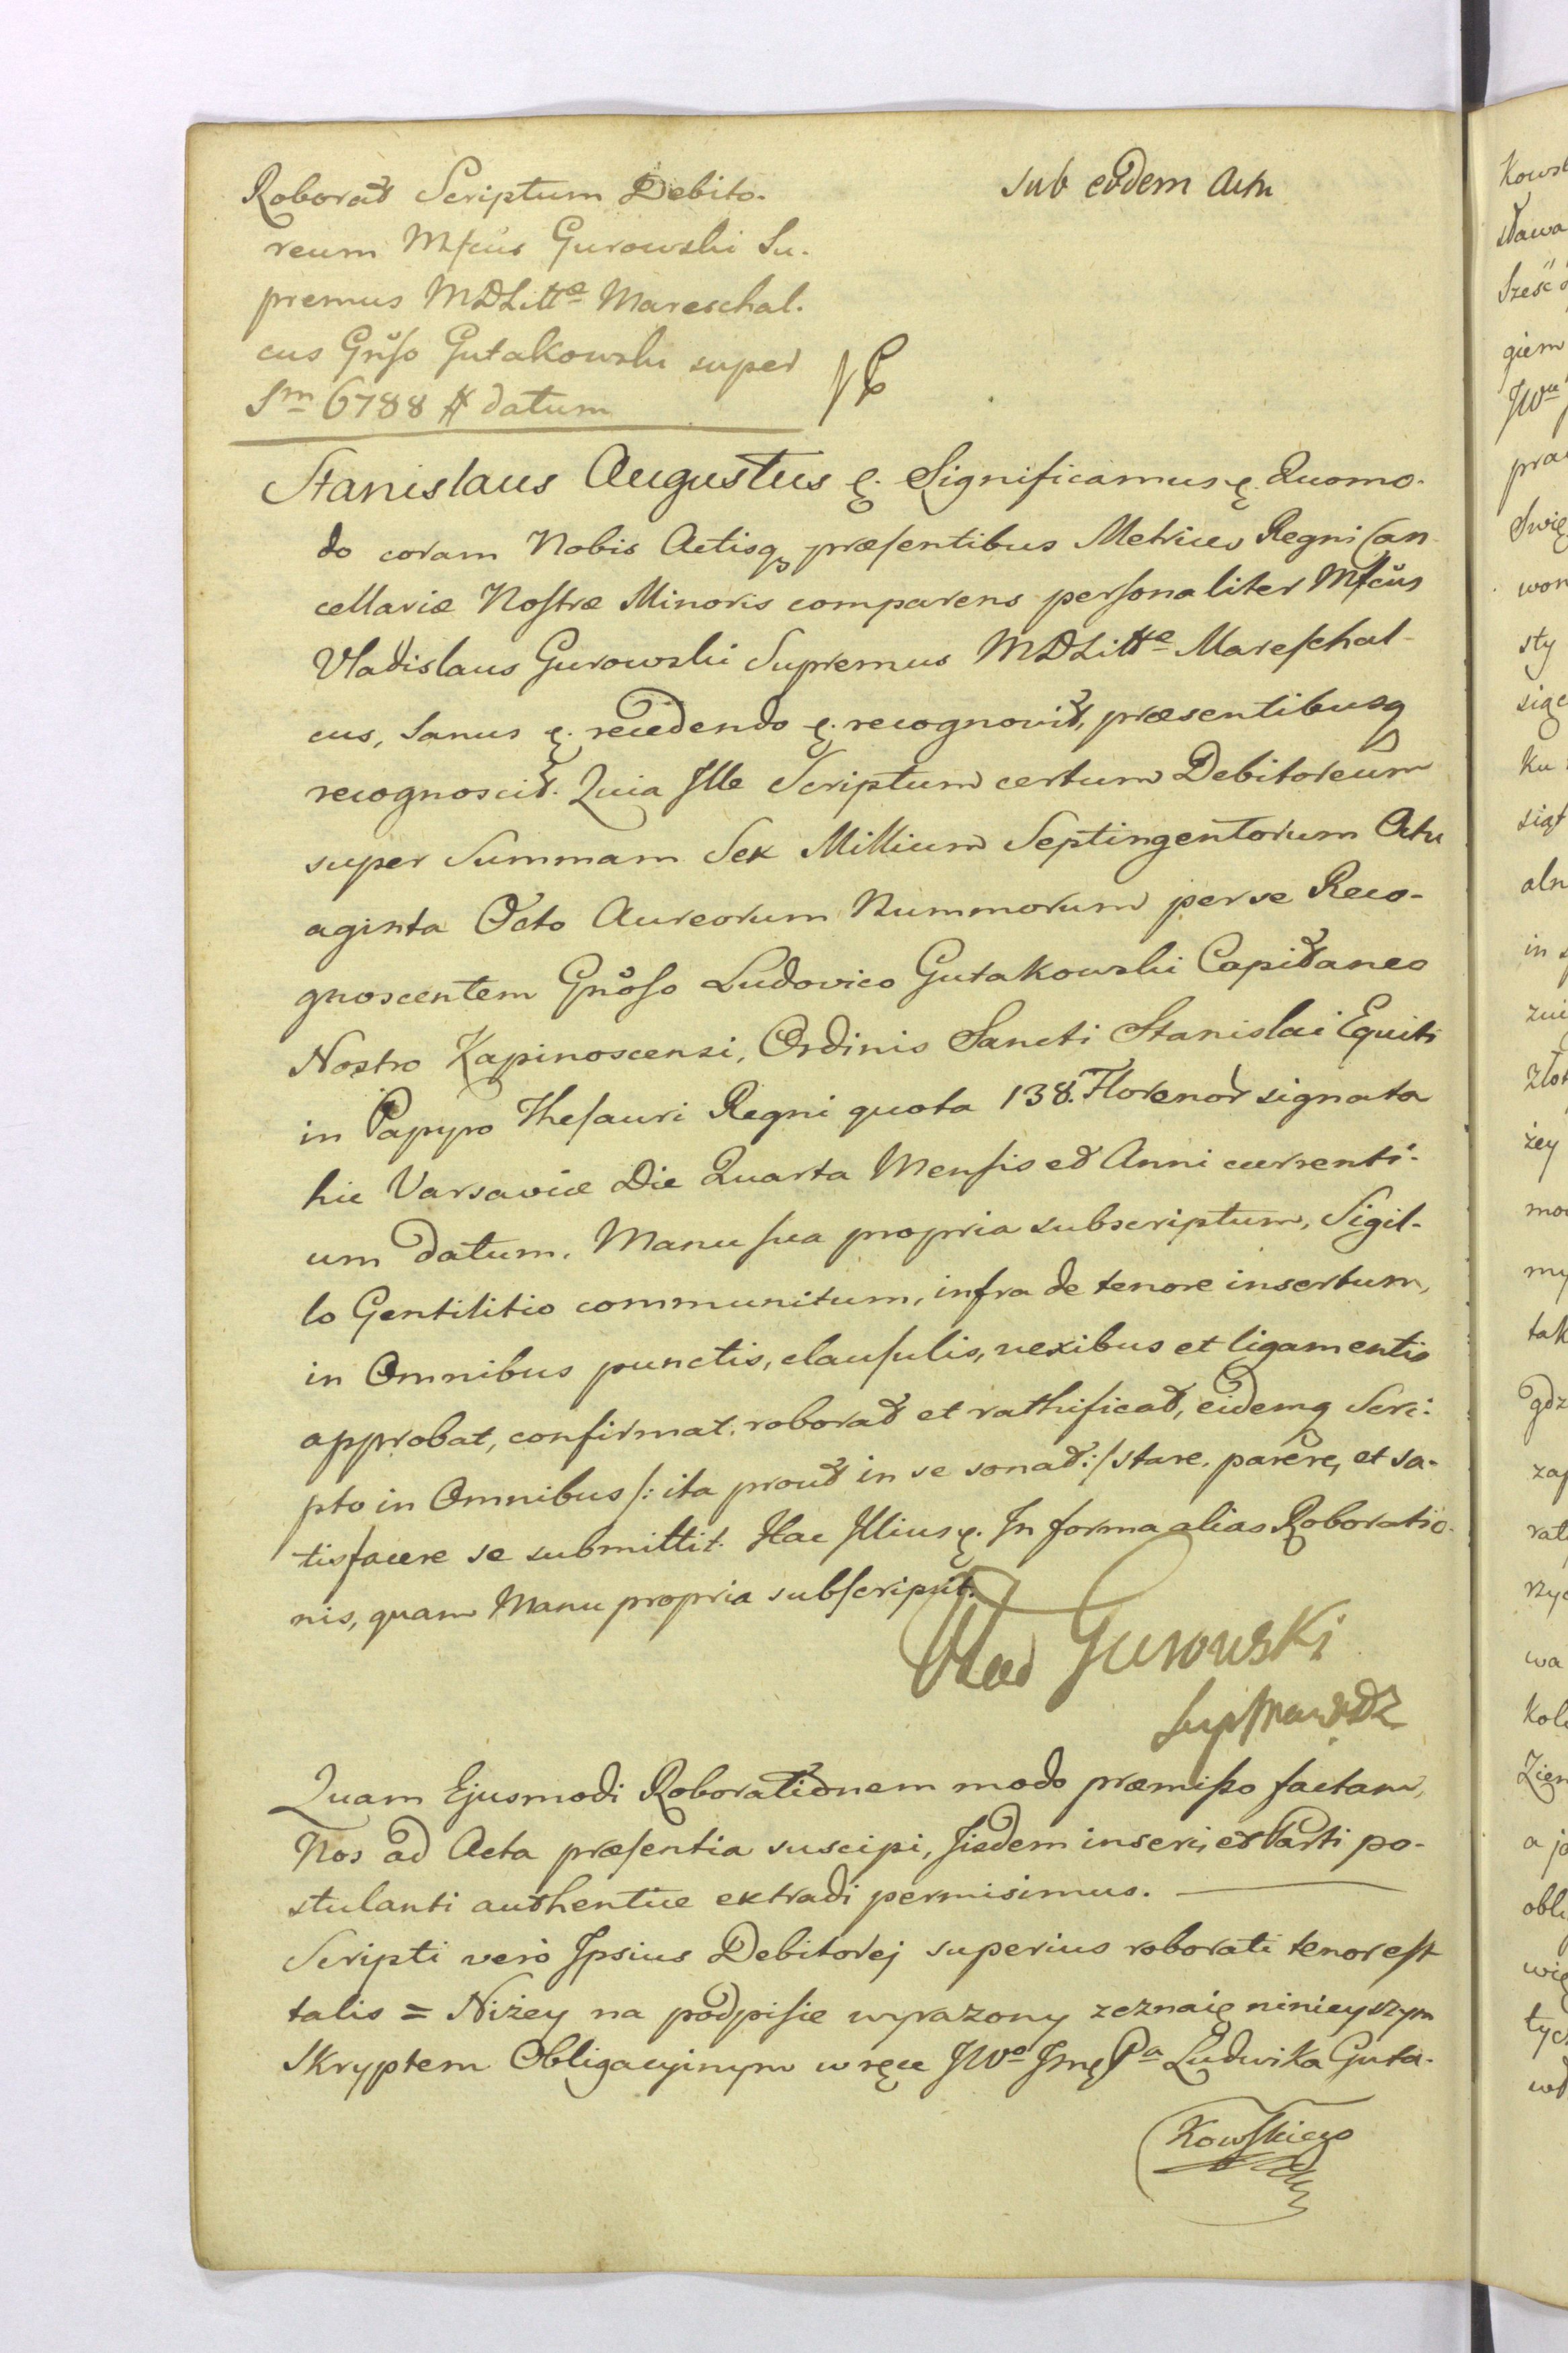 Roborat Scriptum Debito-
reum Mfcus Gurowski Su-
premus MDLittæ Mareschal-
cus Gnoso Gutakowski super
Sm 6788 # datum
sub eodem Actu
Stanislaus Augustus &. Significamus &. Quomo-
do coram Nobis Actisq præsentibus Metrices Regni Can-
cellariæ Nostræ Minoris comparens personaliter Mfcus
Vladislaus Gurowski Supremus MDLittæ Mareschal-
cus, Sanus &. recedendo &. recognovit, præsentibusq
recognoscit. Quia Ille Scriptum certum Debitoreum
super Summam Sex Millium Septingentorum Octu
aginta Octo Aureorum Nummorum per se Reco-
gnoscentem Gnoso Ludovico Gutakowski Capitaneo
Nostro Kapinoscensi, Ordinis Sancti Stanislai Equiti
in Papyro Thesauri Regni quota 138. Florenor signata
hic Varsaviæ Die Quarta Mensis et Anni currenti-
um datum. Manu sua propria subscriptum, Sigil-
lo Gentilitio communitum, infra de tenore insertum,
in Omnibus punctis, clausulis, nexibus et ligamentis
approbat, confirmat, roborat et rathificat, eidemq Scri:
pto in Omnibus /: ita prout in se sonat :/ stare, parere, et sa-
tisfacere se submittit. Hac Illius &. In forma alias Roboratio-
nis, quam Manu propria subscripsit.
Vlad Gurowski
Quam Ejusmodi Roborationem modo præmisso factam,
Nos ad Acta præsentia suscipi, Iisdem inseri, et Parti po-
stulanti authentice extradi permisimus.
Scripti vero Ipsius Debitorej superius roborati tenor est
talis = Niżey na podpisie wyrażony zeznaię ninieyszym
Skryptem Obligacyinym w ręce JWo Jmę Pa Ludwika Guta-
kowskiego